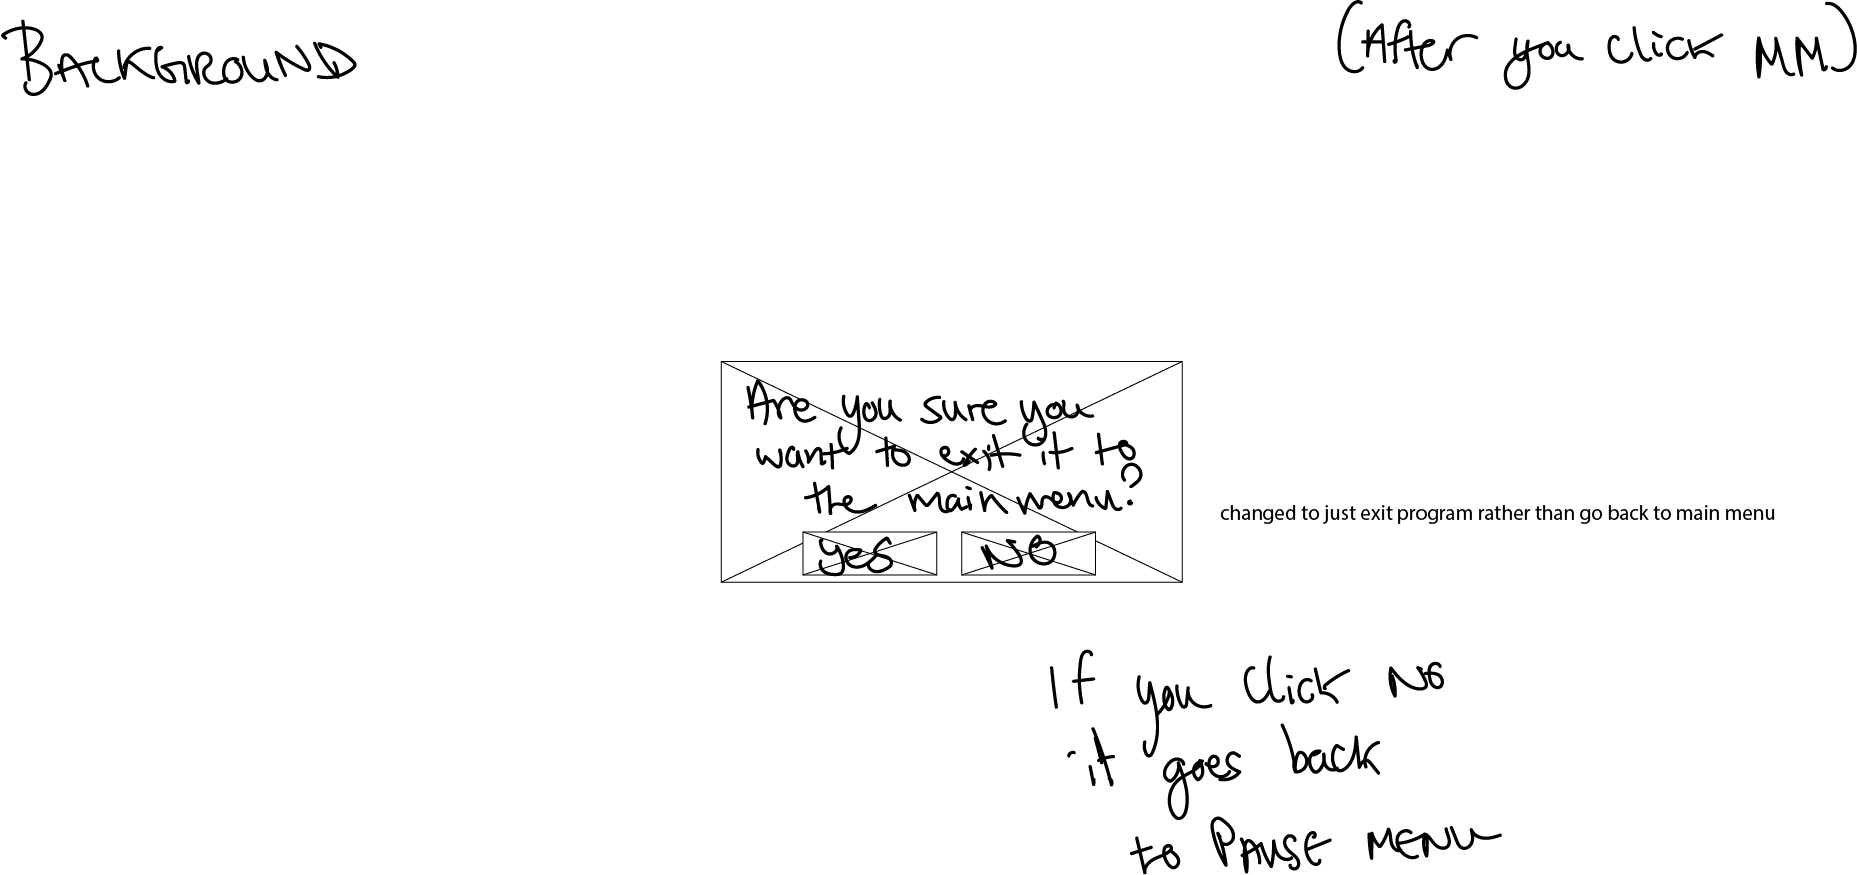 BACKGROUND
(After you click MM)
Are you sure you
want to exit it to
the main menu?
yes NO
changed to just exit program rather than go back to main menu
If you click NO
it goes back
to PAUSE MENU